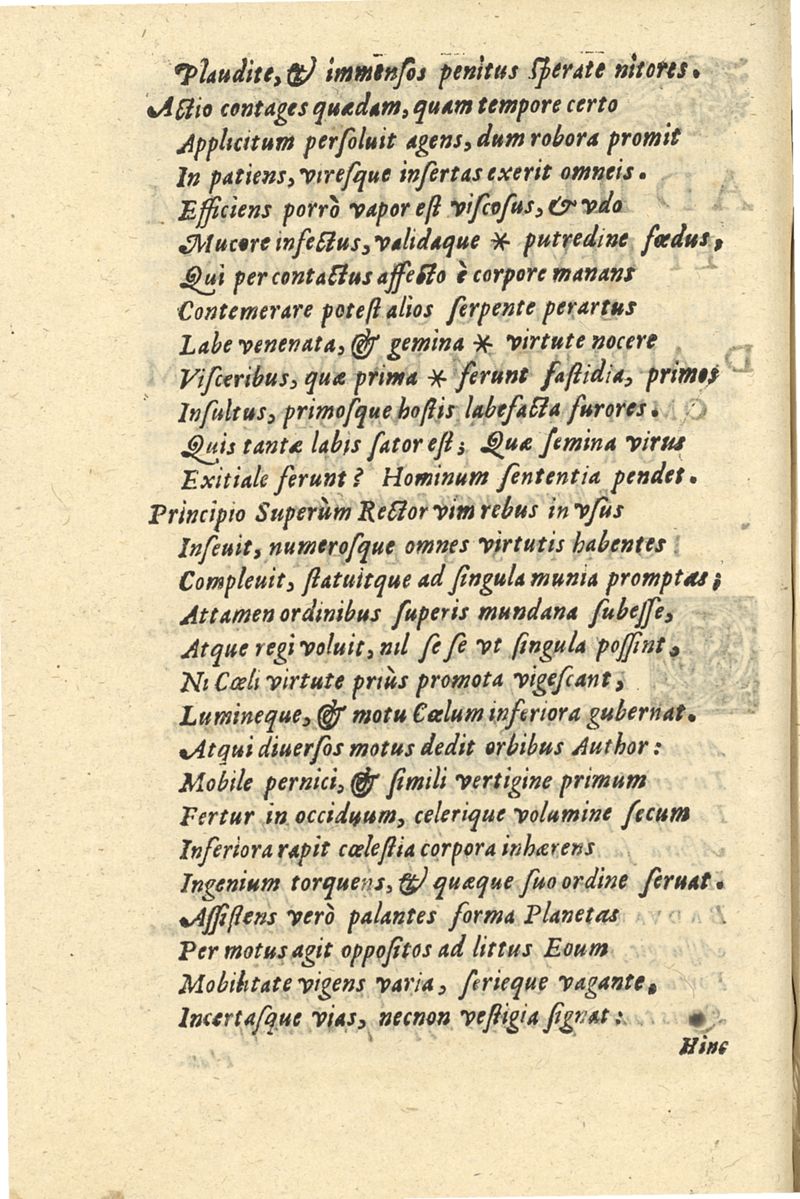 Plaudite, & immensos penitus sperate nitores.
Actio contages quædam, quam tempore certo
Applicitum persoluit agens, dum robora promit
In patiens, viresque insertas exerit omneis.
Efficiens porrò vapor est viscosus, & vdo
Mucore infectus, validaque * putredine fœdus,
Qui per contactus affecto è corpore manans
Contemerare potest alios serpente per artus
Labe venenata, & gemina * virtute nocere
Visceribus, quæ prima * ferunt fastidia, primos
Insultus, primosque hostis labefacta furores.
Quis tantæ labis sator est; Quæ semina virus
Exitiale ferunt? Hominum sententia pendet.
Principio Superùm Rector vim rebus in vsus
Inseuit, numerosque omnes virtutis habentes
Compleuit, statuitque ad singula munia promptas;
Attamen ordinibus superis mundana subesse,
Atque regi voluit, nil se se vt singula possint,
Ni Cœli virtute priùs promota vigescant,
Lumineque, & motu Cœlum inferiora gubernat.
Atqui diuersos motus dedit orbibus Author:
Mobile pernici, & simili vertigine primum
Fertur in occiduum, celerique volumine secum
Inferiora rapit cœlestia corpora inhærens
Ingenium torquens, & quæque suo ordine seruat.
Assistens verò palantes forma Planetas
Per motus agit oppositos ad littus Eoum
Mobilitate vigens varia, serieque vagante.
Incertasque vias, necnon vestigia signat:
Hinc